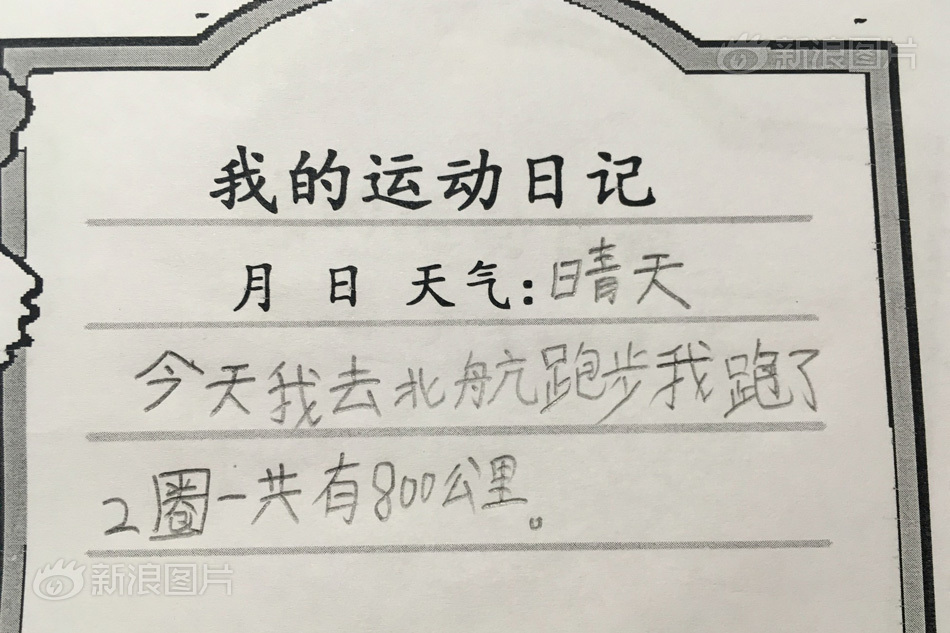 新浪图片
我的运动日记
月 日 天气:晴天
今天我去北航跑步我跑了
2圈一共有800公里。
新浪图片